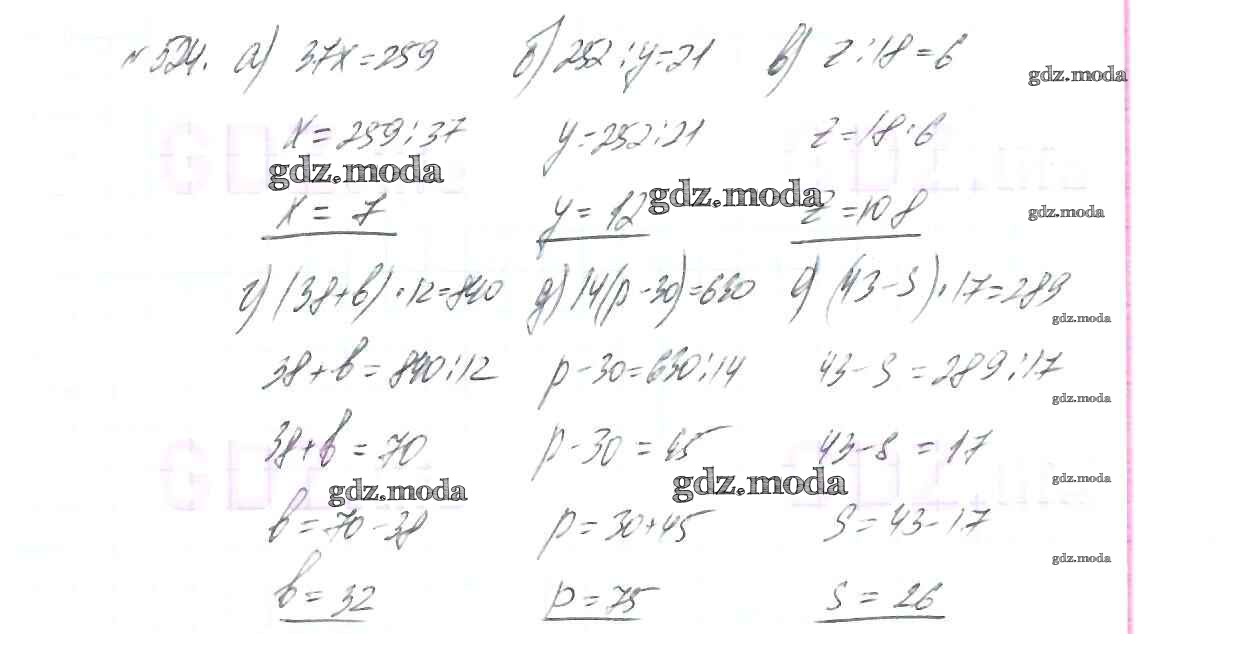 № 524. а) 37x = 259 б) 252 : y = 21 в) z : 18 = 6
gdz.moda
x = 259 : 37 y = 252 : 21 z = 18 · 6
gdz.moda gdz.moda
x = 7 y = 12 z = 108
gdz.moda
г) (38 + b) · 12 = 840 д) 14(p - 30) = 630 е) (43 - s) · 17 = 289
gdz.moda
38 + b = 840 : 12 p - 30 = 630 : 14 43 - s = 289 : 17
gdz.moda
38 + b = 70 p - 30 = 45 43 - s = 17
gdz.moda gdz.moda gdz.moda
b = 70 - 38 p = 30 + 45 s = 43 - 17
gdz.moda
b = 32 p = 75 s = 26